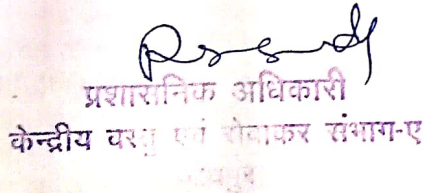 प्रशासनिक अधिकारी
केन्द्रीय वस्तु एवं सेवाकर संभाग-ए